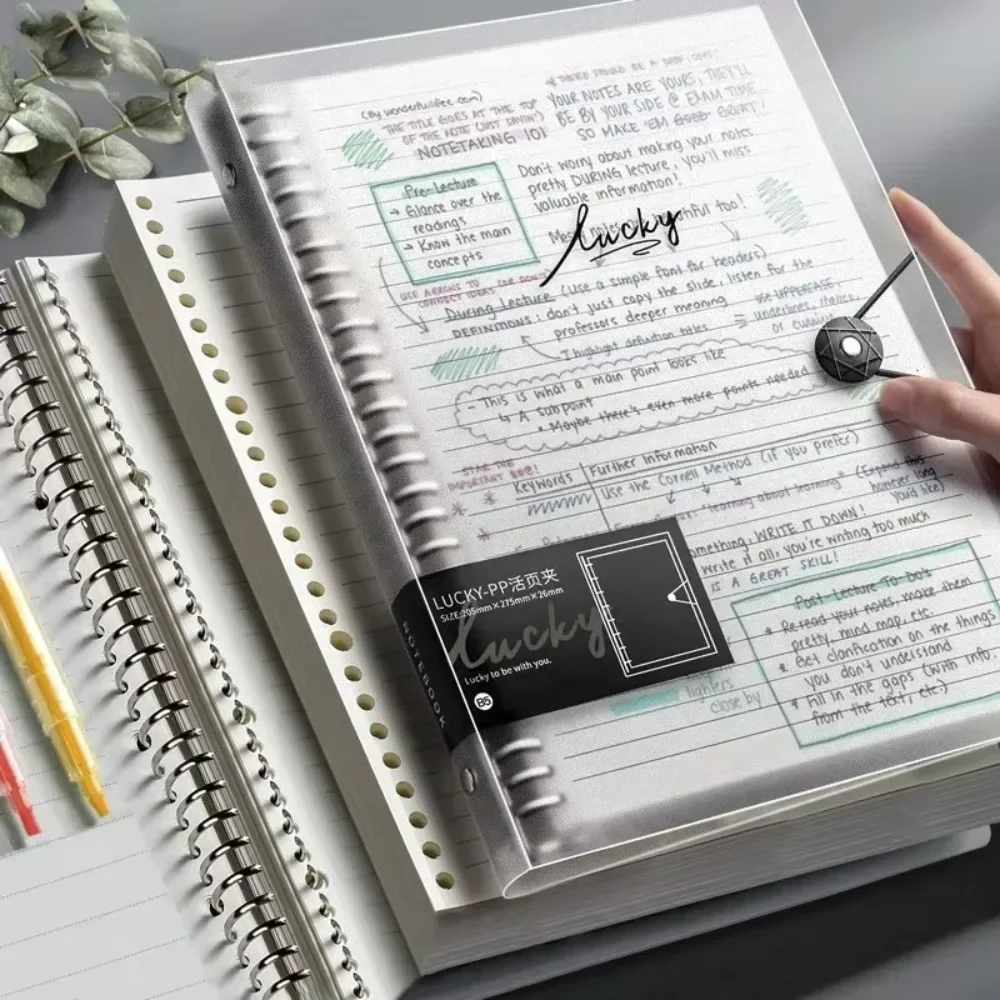 (by wonderfulifee.com)
THE TITLE GOES AT THE TOP
OF THE NOTE (JUST SAYIN')
NOTETAKING 101
THERE SHOULD BE A
YOUR NOTES ARE YOURS, THEY'LL
BE BY YOUR SIDE @ EXAM TIME...
SO MAKE 'EM GOOD GREAT!
Pre-Lecture
→ Glance over the
readings
→ Know the main
concepts
Don't worry about making your notes
pretty DURING lecture, you'll miss
valuable information!
too!
Lucky
USE ARROWS TO
CONNECT IDEAS, (OR DON'T)
During Lecture (use a simple font for headers)
DEFINITIONS: don't just copy the slide, listen for the
professors deeper meaning
I highlight definition titles
USE UPPERCASE,
underlines, italics,
or cursive
- This is what a main point looks like
↳ A subpoint
• Maybe there's even more points needed
STAR THE
IMPORTANT
Keywords
Further Information
Use the Cornell Method (if you prefer)
"learning about learning" (Expand this
however long
you'd like)
WRITE IT DOWN!
Write it all, you're writing too much
IS A GREAT SKILL!
LUCKY-PP活页夹
SIZE:205mm×275mm×26mm
Lucky
Lucky to be with you.
B5
NOTEBOOK
lighters
close by
Post-Lecture TO-DO's
• Re-read your notes, make them
pretty, mind map, etc.
• Get clarification on the things
you don't understand
• Fill in the gaps (with info.
from the text, etc.)